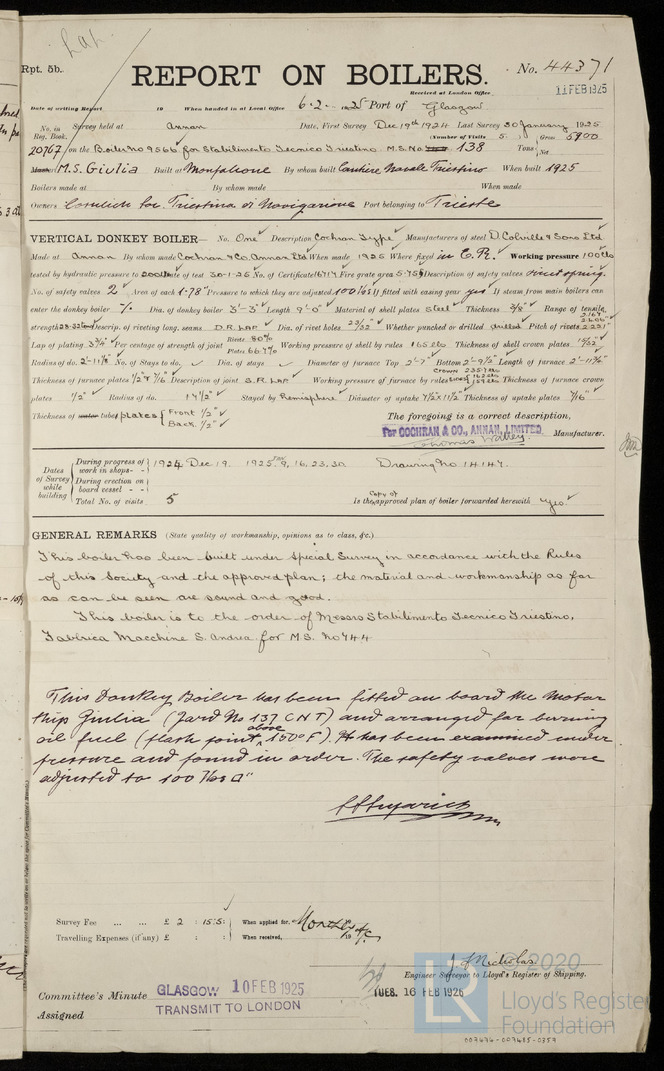 Lan.
Rpt. 5b.
REPORT ON BOILERS.
No. 44371
Received at London Office
11 FEB 1925
Date of writing Report 19 When handed in at Local Office 6·2·1925 Port of Glasgow
No. in Reg. Book. Survey held at Annan Date, First Survey Dec 19th 1924 Last Survey 30 January 1925
(Number of Visits 5 Gross 5900
20767 on the Boiler No 9566 for Stabilimento Tecnico Triestino M.S. No 138 Tons Net
M.S. Giulia Built at Monfalcone By whom built Cantiere Navale Triestino When built 1925
Boilers made at By whom made When made
Owners Cosulich Soc. Triestina di Navigazione Port belonging to Trieste
VERTICAL DONKEY BOILER— No. One Description Cochran Type Manufacturers of steel D. Colville & Sons Ltd
Made at Annan By whom made Cochran & Co. Annan Ltd When made 1925 Where fixed in E.R. Working pressure 100 lbs
tested by hydraulic pressure to 200 lbs Date of test 30-1-25 No. of Certificate 16714 Fire grate area Description of safety valves direct spring
No. of safety valves 2 Area of each 1·78" Pressure to which they are adjusted 100 lbs If fitted with easing gear yes If steam from main boilers can
enter the donkey boiler Dia. of donkey boiler 3'-3" Length 9'-0" Material of shell plates Steel Thickness 3/8" Range of tensile
strength 28-32 tons Descrip. of riveting long. seams D.R. LAP Dia. of rivet holes 23/32" Whether punched or drilled drilled Pitch of rivets
Lap of plating 3 3/4" Per centage of strength of joint Rivets Plates Working pressure of shell by rules 165 lbs Thickness of shell crown plates 19/32"
Radius of do. 2'-11 1/8" No. of Stays to do. Dia. of stays Diameter of furnace Top 2'-7" Bottom 2'-9 1/2" Length of furnace
Thickness of furnace plates Description of joint S.R. LAP Working pressure of furnace by rules Thickness of furnace crown
plates 1/2" Radius of do. 17 1/2" Stayed by Hemisphere Diameter of uptake Thickness of uptake plates 7/16"
Thickness of water tube plates Front 1/2" Back 1/2"
The foregoing is a correct description,
For COCHRAN & CO., ANNAN, LIMITED.
Manufacturer.
Dates of Survey while building
During progress of work in shops - - 1924 Dec 19. 1925 Jan 9, 16, 23, 30 Drawing No. 14147.
During erection on board vessel - -
Total No. of visits 5
Is the Copy of approved plan of boiler forwarded herewith Yes
GENERAL REMARKS (State quality of workmanship, opinions as to class, &c.)
This boiler has been built under Special Survey in accordance with the Rules
of this Society and the approved plan; the material and workmanship as far
as can be seen are sound and good.
This boiler is to the order of Messrs Stabilimento Tecnico Triestino,
Fabbrica Macchine S. Andrea for M.S. No 744
This Donkey Boiler has been fitted on board the Motor
ship Giulia (Yard No 137 CNT) and arranged for burning
oil fuel (flash point above 150° F). It has been examined under
pressure and found in order. The safety valves were
adjusted to 100 lbs □"
Survey Fee ... ... £ 2 : 15 : 5 : When applied for, Monthly a/c
Travelling Expenses (if any) £ : : When received, 19
J. Nicholas
Engineer Surveyor to Lloyd's Register of Shipping.
Committee's Minute GLASGOW 10 FEB 1925
TUES. 16 FEB 1926
Assigned TRANSMIT TO LONDON
© 2020
LR
Lloyd's Register
Foundation
007476-007485-0357